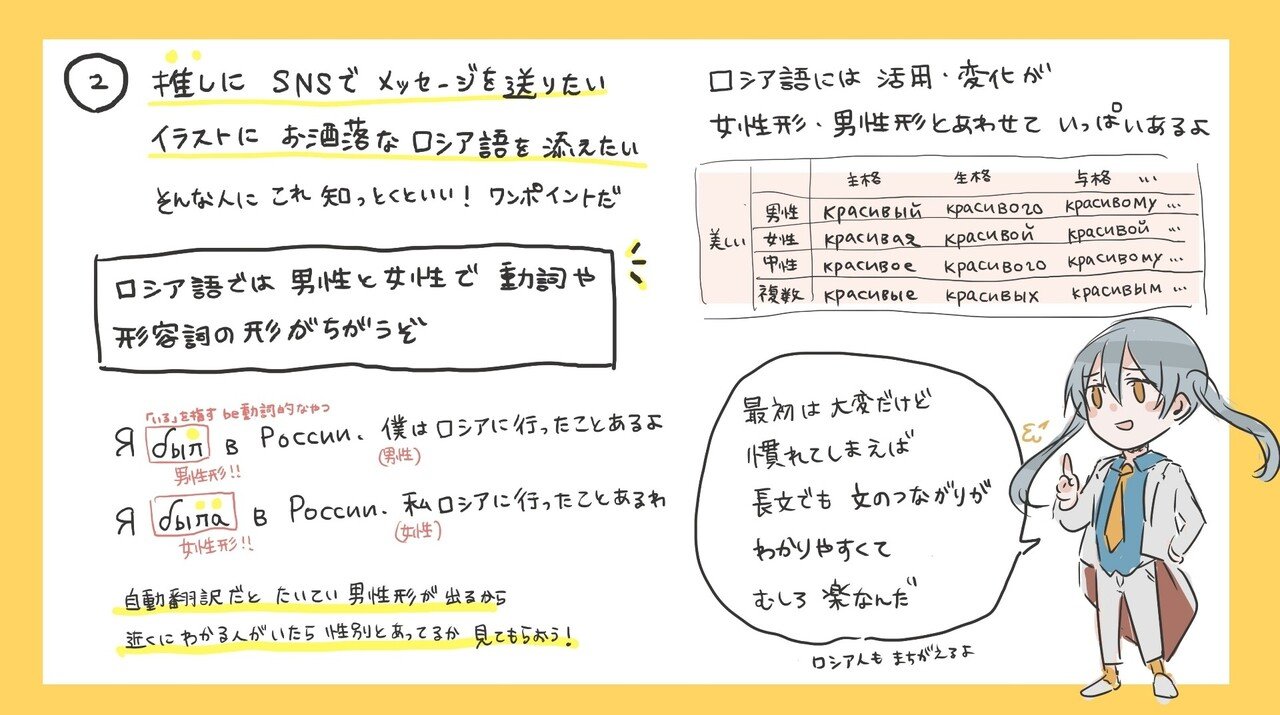 2
推しに SNSで メッセージを送りたい
イラストに お洒落な ロシア語を 添えたい
そんな人に これ 知っとくといい！ ワンポイントだ
ロシア語では 男性と女性で 動詞や
形容詞の 形がちがうぞ
「いる」を指す be動詞的なやつ
Я был в России. 僕は ロシアに行ったことあるよ
男性形!! (男性)
Я была в России. 私 ロシアに行ったことあるわ
女性形!! (女性)
自動翻訳だと たいてい 男性形が 出るから
近くに わかる人がいたら 性別とあってるか 見てもらおう！
ロシア語には 活用・変化が
女性形・男性形とあわせて いっぱいあるよ
主格 生格 与格 …
美しい
男性 красивый красивого красивому …
女性 красивая красивой красивой …
中性 красивое красивого красивому …
複数 красивые красивых красивым …
最初は 大変だけど
慣れてしまえば
長文でも 文のつながりが
わかりやすくて
むしろ 楽なんだ
ロシア人も まちがえるよ